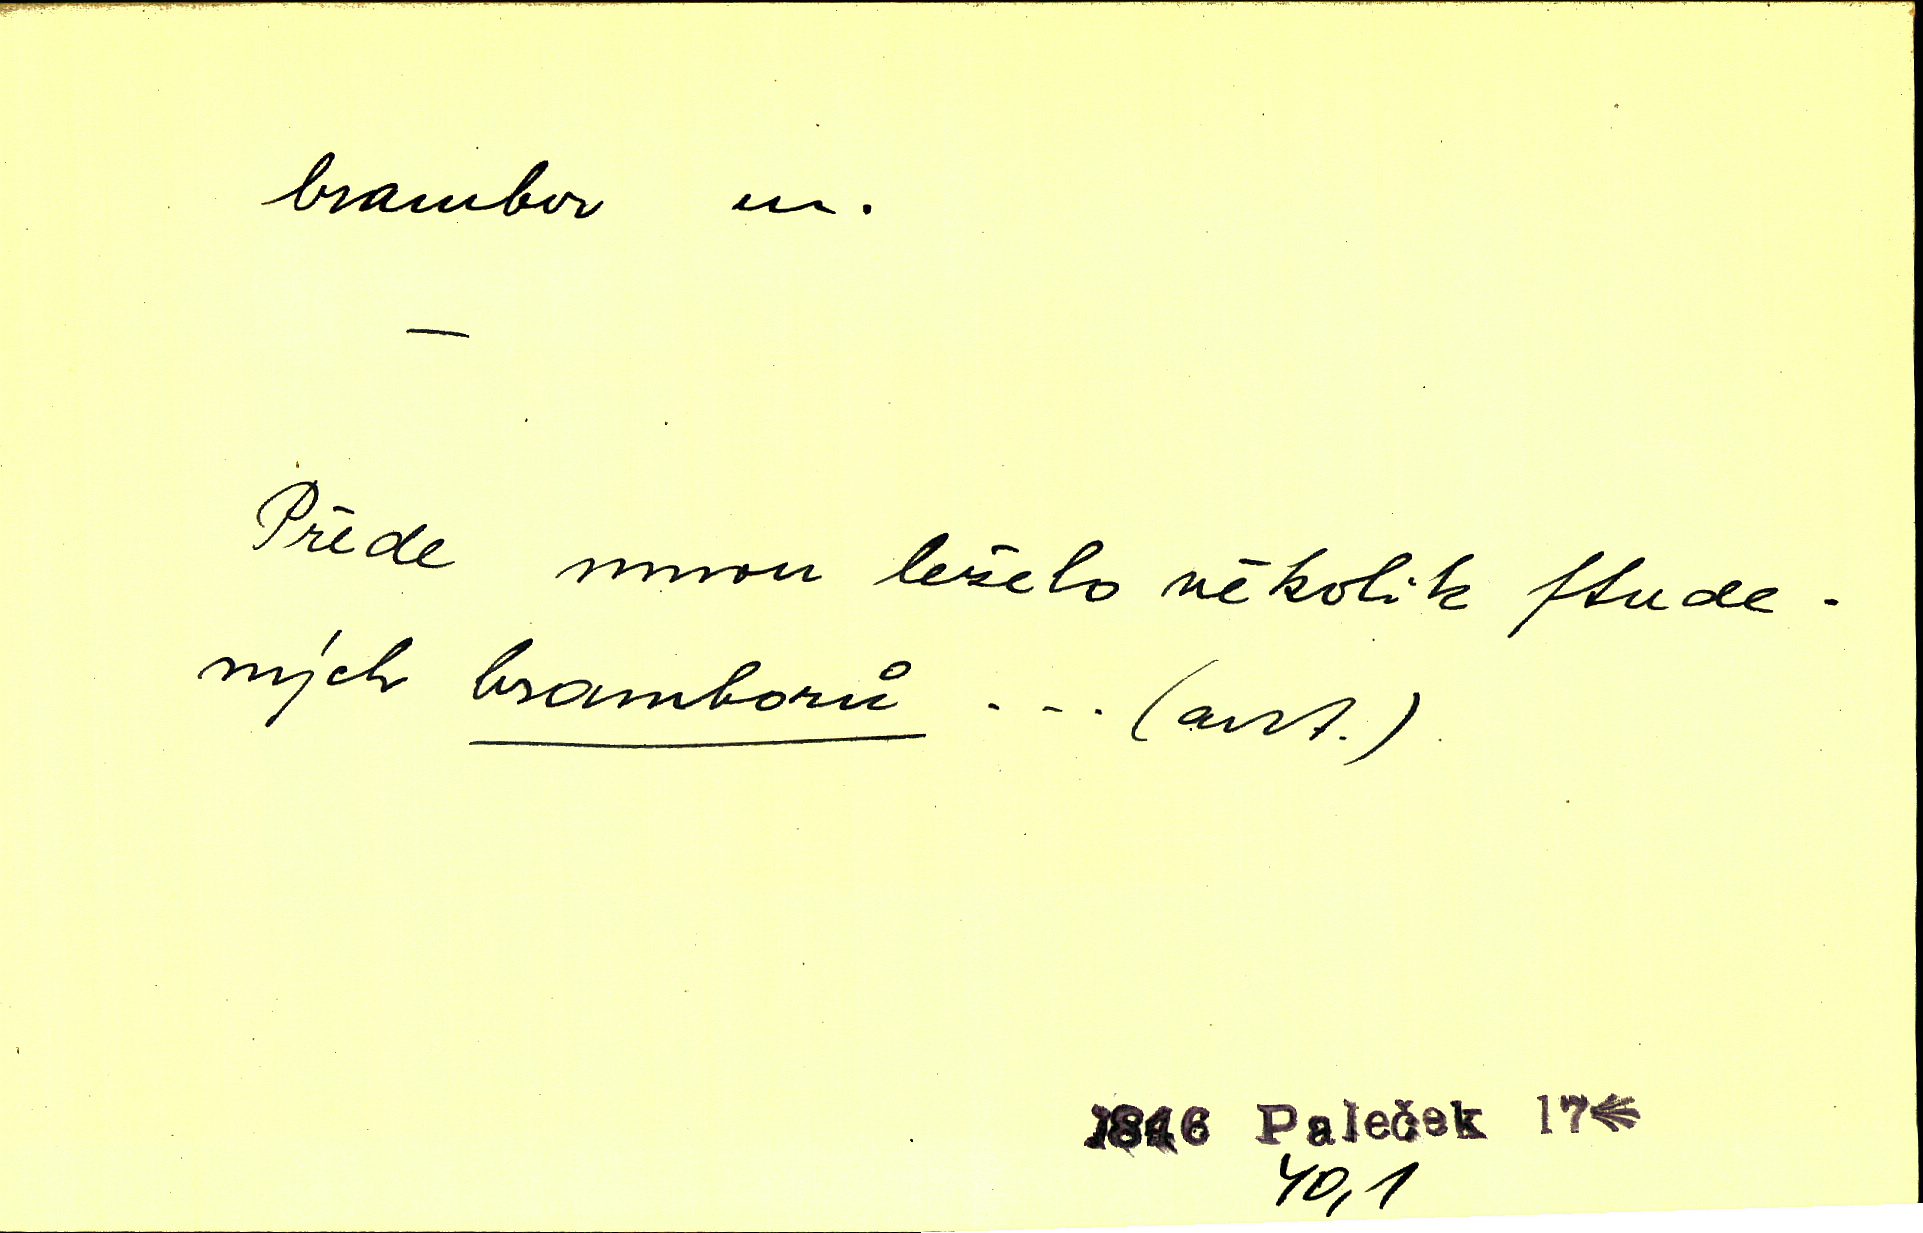 brambor m.
—
Přede mnou leželo několik stude-
ných bramborů ... (avt.)
1846 Paleček 17
40,1